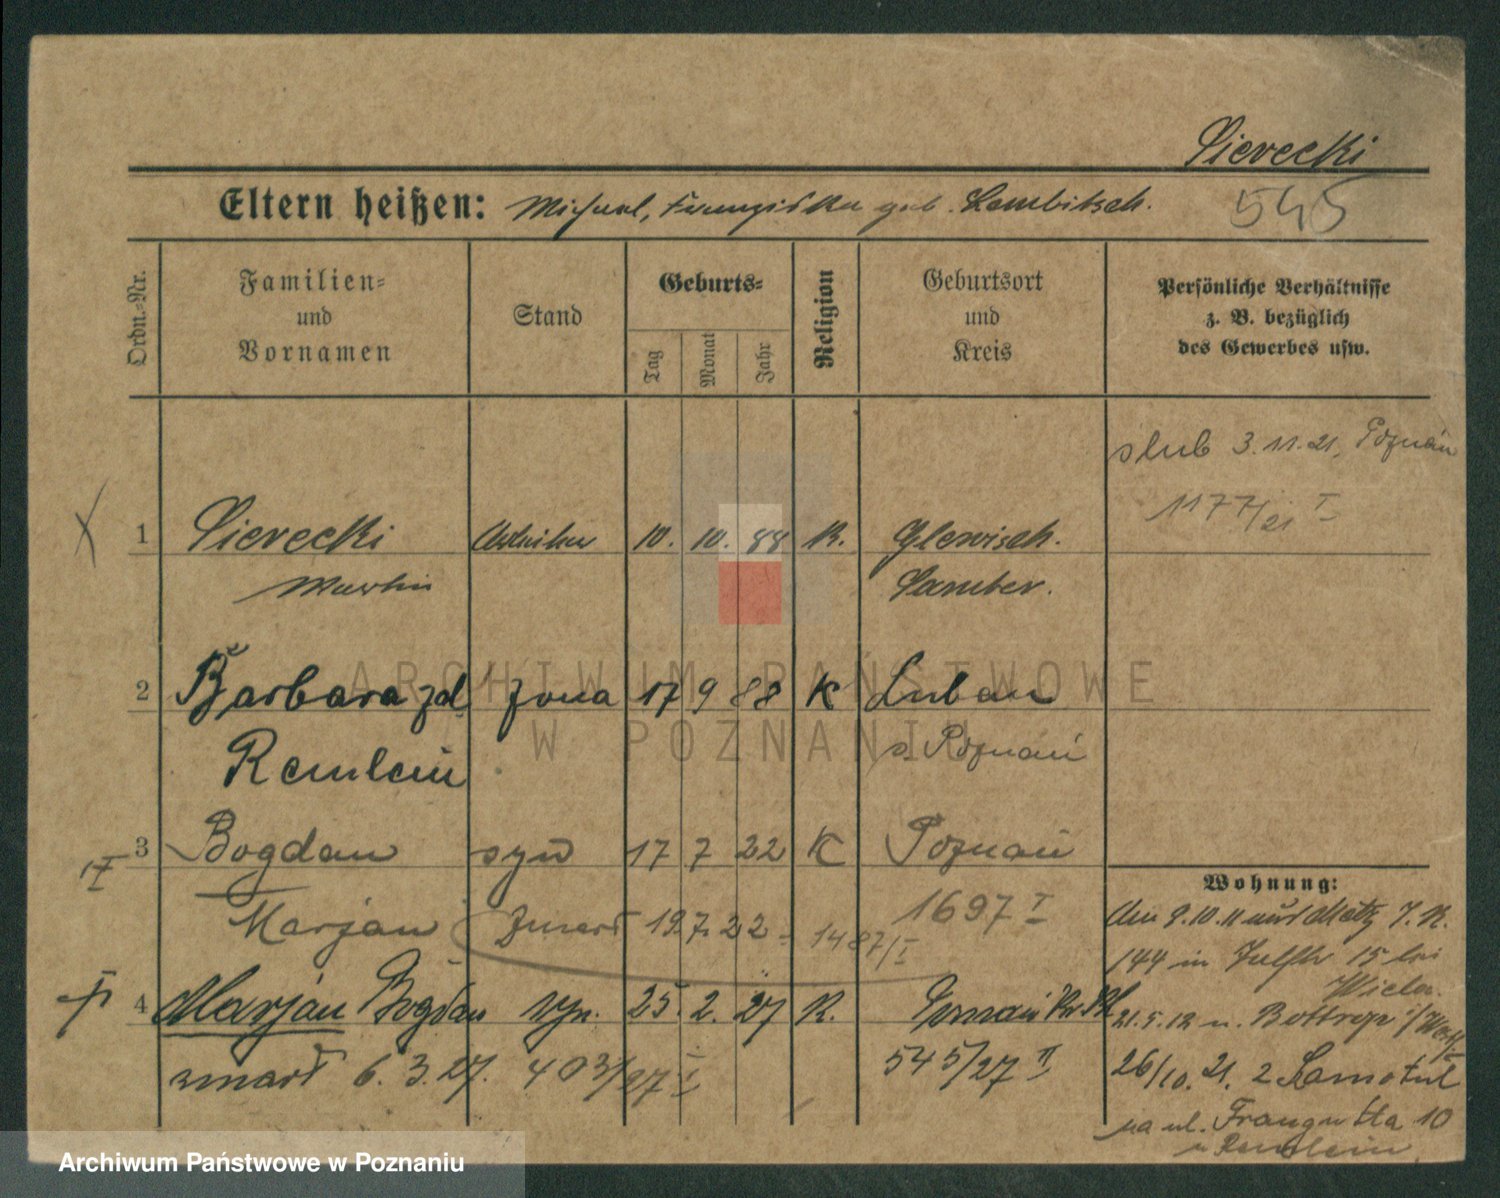 Sierecki
Eltern heißen: Michael, Franziska geb. Lembitsch.
545
Ordn.-Nr.
Familien-
und
Vornamen
Stand
Geburts-
Tag
Monat
Jahr
Religion
Geburtsort
und
Kreis
Persönliche Verhältnisse
z. B. bezüglich
des Gewerbes usw.
slub 3.11.21, Poznań
1177/21 I
1 Sierecki 10. 10. 88 K.
Martin Samter.
2 Barbara zd żona 17 9 88 K Luban
Remlein p. Poznań
3 Bogdan syn 17 7 22 K Poznań
I
1697 I
Marjan zmarł 19 7. 22 - 1487/I
4 Marjan Bogdan syn. 25. 2. 27 K. Poznań
545/27 II
zmarł 6. 3. 27. 403/27 I
Wohnung:
Am 9.10.11
144 in 15 bei
21.5.12 n. Bottrop i/W
26/10. 21. z
na ul. 10
u Remlein
ARCHIWUM PAŃSTWOWE
W POZNANIU
Archiwum Państwowe w Poznaniu